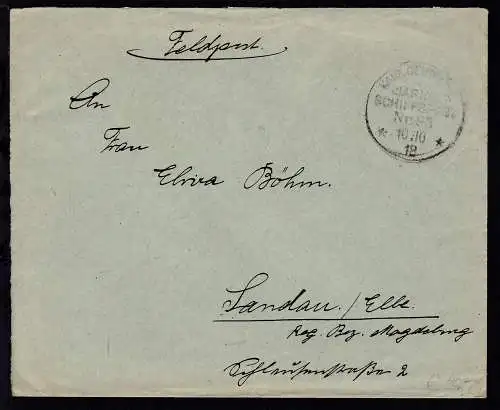 Feldpost.
KAIS. DEUTSCHE
MARINE-
SCHIFFSPOST
No 85
* 10/10 *
18
An
Frau
Elvira Böhm.
Sandau./Elbe.
Reg. Bez. Magdeburg
Schleusenstraße 2